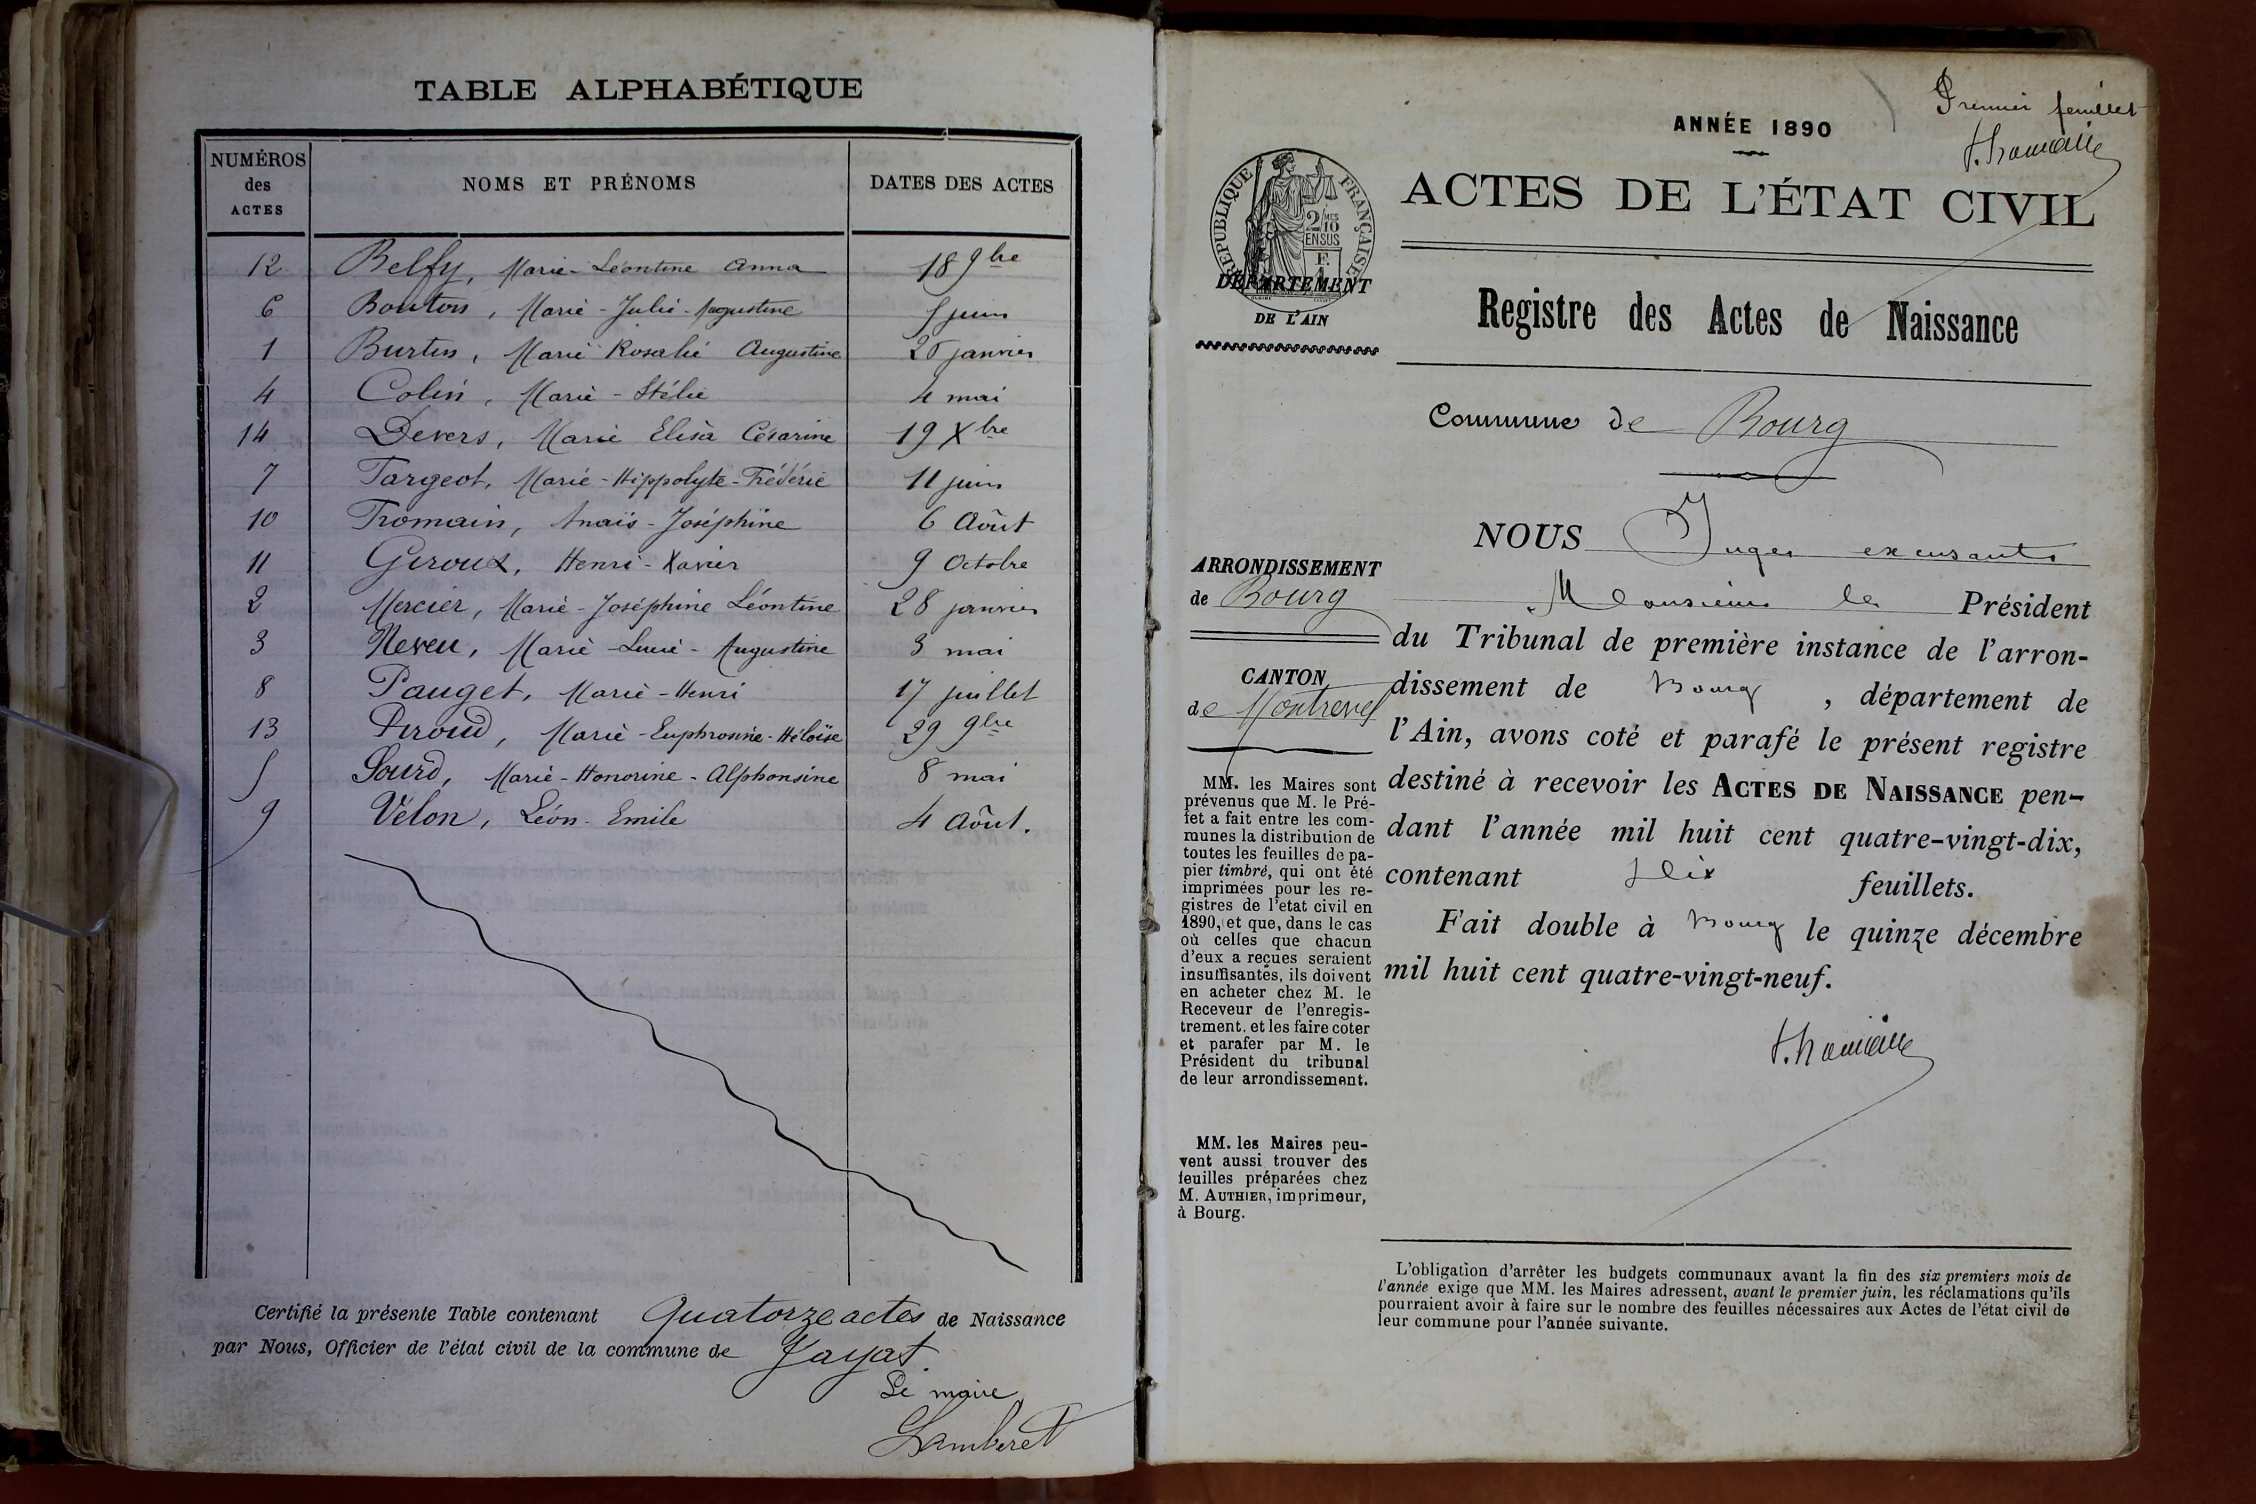 TABLE ALPHABÉTIQUE
NUMÉROS des ACTES NOMS ET PRÉNOMS DATES DES ACTES
12 Belfy, Marie-Léontine Anna 18 9bre
6 Bouton, Marie-Julie-Augustine 5 juin
1 Burtin, Marie Rosalie Augustine 25 janvier
4 Colin, Marie-Stélie 4 mai
14 Devers, Marie Elisa Césarine 19 Xbre
7 Fargeot, Marie-Hippolyte-Frédéric 11 juin
10 Fromain, Anaïs-Joséphine 6 Août
11 Giroux, Henri-Xavier 9 Octobre
2 Mercier, Marie-Joséphine Léontine 28 janvier
3 Neveu, Marie-Lucie-Augustine 3 mai
8 Pauget, Marie-Henri 17 juillet
13 Piroud, Marie-Euphrosine-Héloïse 29 9bre
5 Sourd, Marie-Honorine-Alphonsine 8 mai
9 Vélon, Léon-Emile 4 Août.
Certifié la présente Table contenant Quatorze actes de Naissance
par Nous, Officier de l'état civil de la commune de Jayat.
Le maire
Lamberet
Premier feuillet
ANNÉE 1890
RÉPUBLIQUE FRANÇAISE
2/10 MES
EN SUS
ACTES DE L'ÉTAT CIVIL
DÉPARTEMENT
DE L'AIN
Registre des Actes de Naissance
Commune de Bourg
NOUS Juges excusants
ARRONDISSEMENT
de Bourg
Monsieur le Président
du Tribunal de première instance de l'arron-
CANTON
de Montrevel
dissement de Bourg, département de
l'Ain, avons coté et parafé le présent registre
destiné à recevoir les ACTES DE NAISSANCE pen-
dant l'année mil huit cent quatre-vingt-dix,
contenant dix feuillets.
Fait double à Bourg le quinze décembre
mil huit cent quatre-vingt-neuf.
MM. les Maires sont
prévenus que M. le Pré-
fet a fait entre les com-
munes la distribution de
toutes les feuilles de pa-
pier timbré, qui ont été
imprimées pour les re-
gistres de l'etat civil en
1890, et que, dans le cas
où celles que chacun
d'eux a reçues seraient
insuffisantes, ils doivent
en acheter chez M. le
Receveur de l'enregis-
trement, et les faire coter
et parafer par M. le
Président du tribunal
de leur arrondissement.
MM. les Maires peu-
vent aussi trouver des
feuilles préparées chez
M. AUTHIER, imprimeur,
à Bourg.
L'obligation d'arrêter les budgets communaux avant la fin des six premiers mois de
l'année exige que MM. les Maires adressent, avant le premier juin, les réclamations qu'ils
pourraient avoir à faire sur le nombre des feuilles nécessaires aux Actes de l'état civil de
leur commune pour l'année suivante.